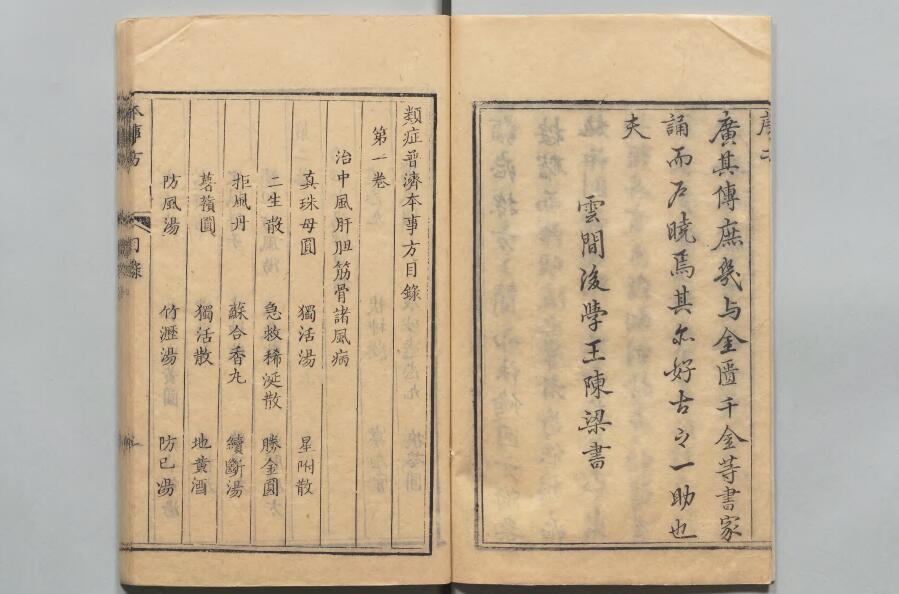 廣其傳庶幾与金匱千金等書家
誦而戶曉焉其亦好古之一助也
夫
雲間後學王陳梁書
類症普濟本事方目錄
第一卷
治中風肝胆筋骨諸風病
真珠母圓 獨活湯 星附散
二生散 急救稀涎散 勝金圓
拒風丹 蘇合香丸 續斷湯
獨活散 地黄酒
防風湯 竹瀝湯 防已湯
本事方 目錄